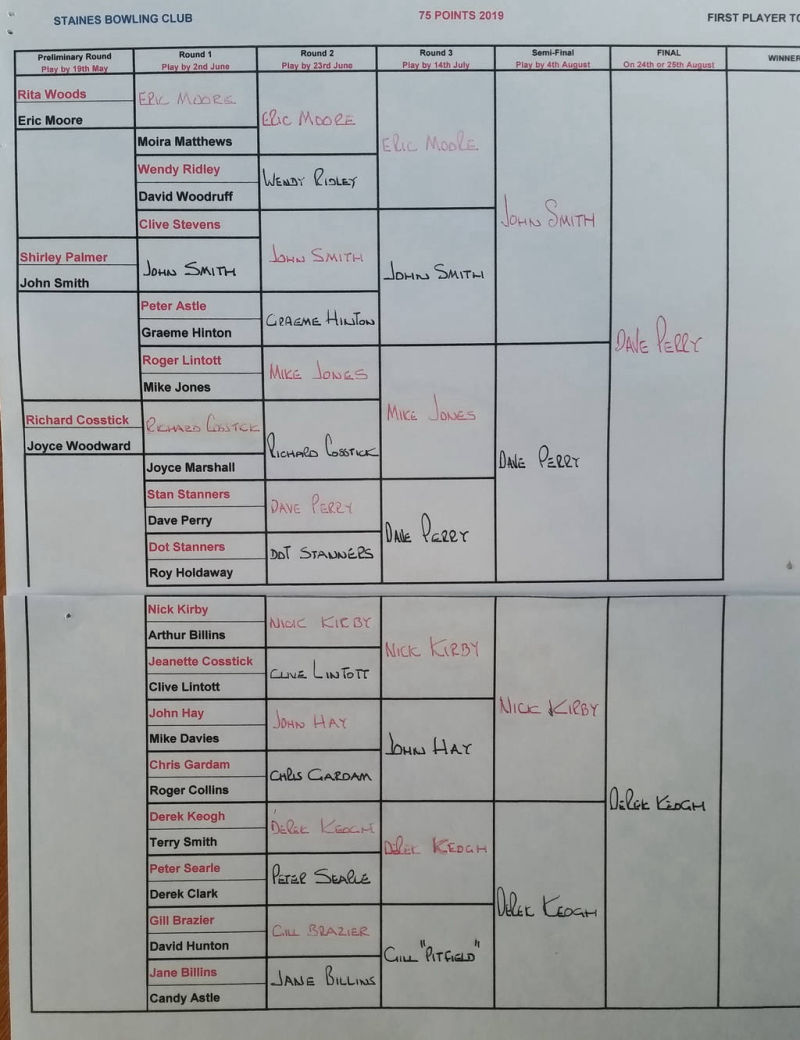 STAINES BOWLING CLUB
75 POINTS 2019
FIRST PLAYER TO
Preliminary Round
Play by 19th May
Round 1
Play by 2nd June
Round 2
Play by 23rd June
Round 3
Play by 14th July
Semi-Final
Play by 4th August
FINAL
On 24th or 25th August
WINNER
Rita Woods
Eric Moore
Shirley Palmer
John Smith
Richard Cosstick
Joyce Woodward
ERIC MOORE
Moira Matthews
Wendy Ridley
David Woodruff
Clive Stevens
JOHN SMITH
Peter Astle
Graeme Hinton
Roger Lintott
Mike Jones
RICHARD COSSTICK
Joyce Marshall
Stan Stanners
Dave Perry
Dot Stanners
Roy Holdaway
Nick Kirby
Arthur Billins
Jeanette Cosstick
Clive Lintott
John Hay
Mike Davies
Chris Gardam
Roger Collins
Derek Keogh
Terry Smith
Peter Searle
Derek Clark
Gill Brazier
David Hunton
Jane Billins
Candy Astle
ERIC MOORE
WENDY RIDLEY
JOHN SMITH
GRAEME HINTON
MIKE JONES
RICHARD COSSTICK
DAVE PERRY
DOT STANNERS
NICK KIRBY
CLIVE LINTOTT
JOHN HAY
CHRIS GARDAM
DEREK KEOGH
PETER SEARLE
GILL BRAZIER
JANE BILLINS
ERIC MOORE
JOHN SMITH
MIKE JONES
DAVE PERRY
NICK KIRBY
JOHN HAY
DEREK KEOGH
GILL "PITFIELD"
JOHN SMITH
DAVE PERRY
NICK KIRBY
DEREK KEOGH
DAVE PERRY
DEREK KEOGH